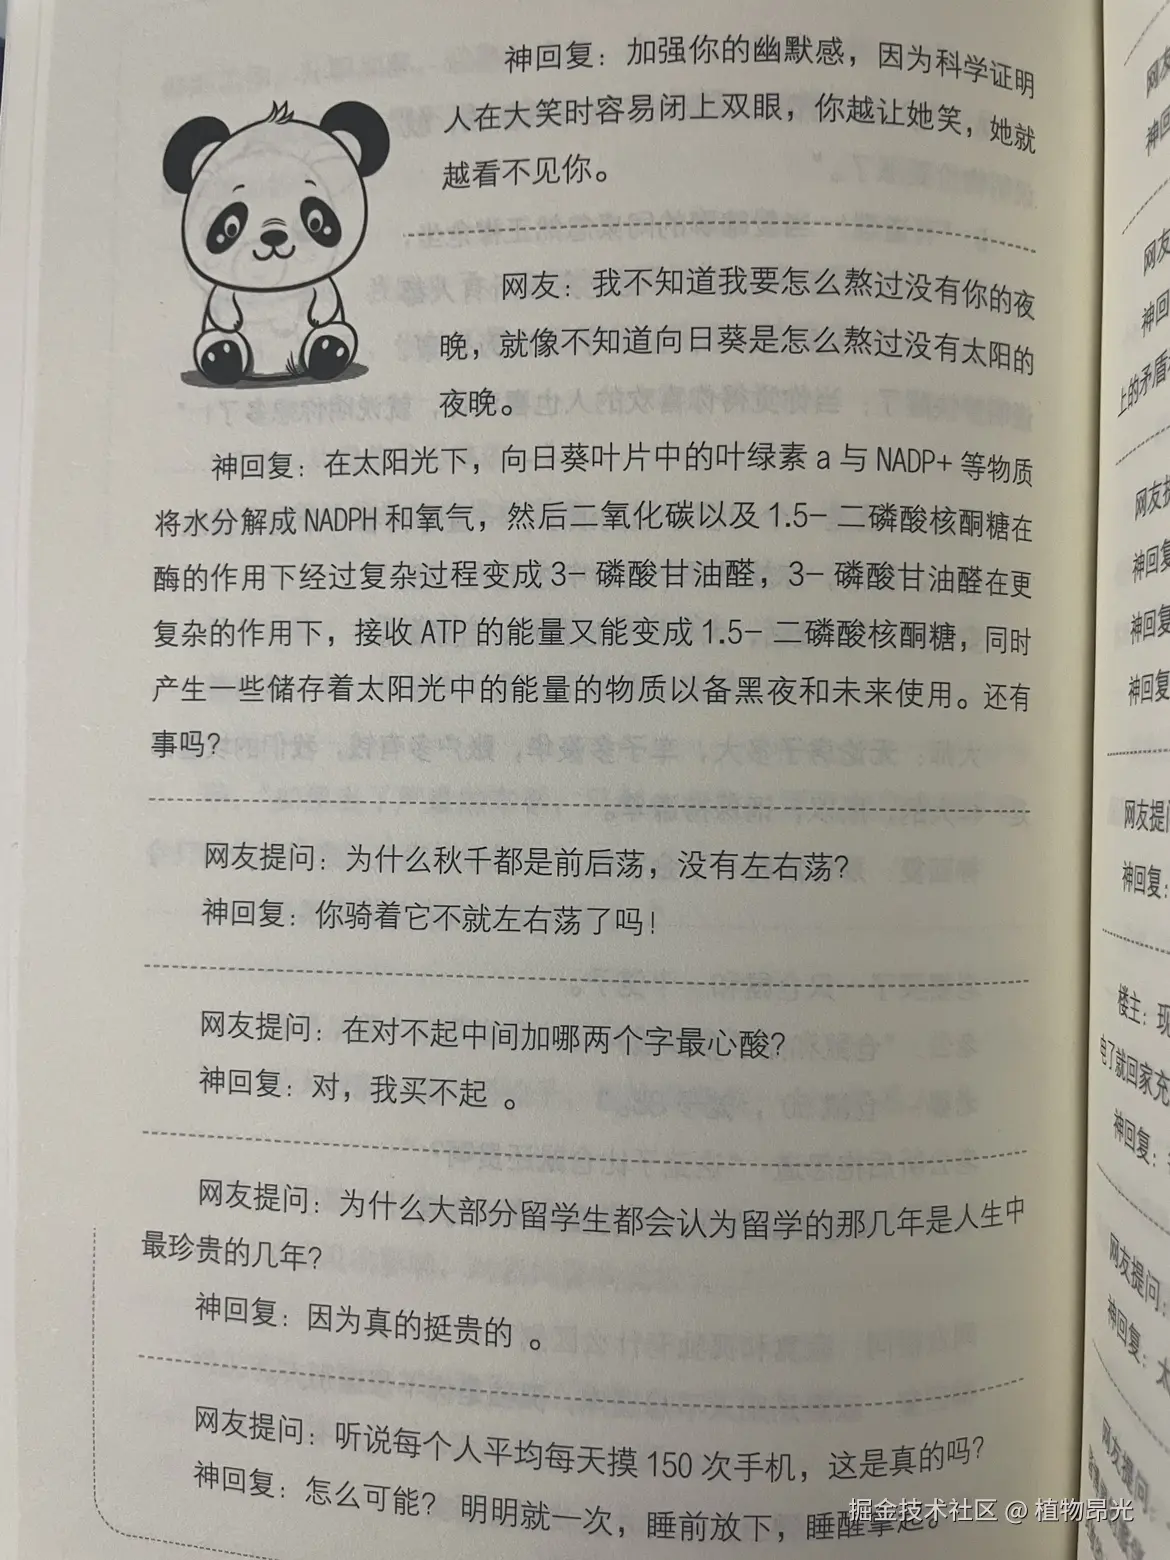 神回复：加强你的幽默感，因为科学证明
人在大笑时容易闭上双眼，你越让她笑，她就
越看不见你。
网友：我不知道我要怎么熬过没有你的夜
晚，就像不知道向日葵是怎么熬过没有太阳的
夜晚。
神回复：在太阳光下，向日葵叶片中的叶绿素 a 与 NADP+ 等物质
将水分解成 NADPH 和氧气，然后二氧化碳以及 1.5- 二磷酸核酮糖在
酶的作用下经过复杂过程变成 3- 磷酸甘油醛，3- 磷酸甘油醛在更
复杂的作用下，接收 ATP 的能量又能变成 1.5- 二磷酸核酮糖，同时
产生一些储存着太阳光中的能量的物质以备黑夜和未来使用。还有
事吗？
网友提问：为什么秋千都是前后荡，没有左右荡？
神回复：你骑着它不就左右荡了吗！
网友提问：在对不起中间加哪两个字最心酸？
神回复：对，我买不起 。
网友提问：为什么大部分留学生都会认为留学的那几年是人生中
最珍贵的几年？
神回复：因为真的挺贵的 。
网友提问：听说每个人平均每天摸 150 次手机，这是真的吗？
神回复：怎么可能？ 明明就一次，睡前放下，睡醒拿起。
掘金技术社区 @ 植物昂光
网友
神回
网友
神回
上的矛盾
网友提
神回复
神回复
神回复
网友提问
神回复：
楼主：现
电了就回家充
神回复：
网友提问：
神回复：太
网友提问